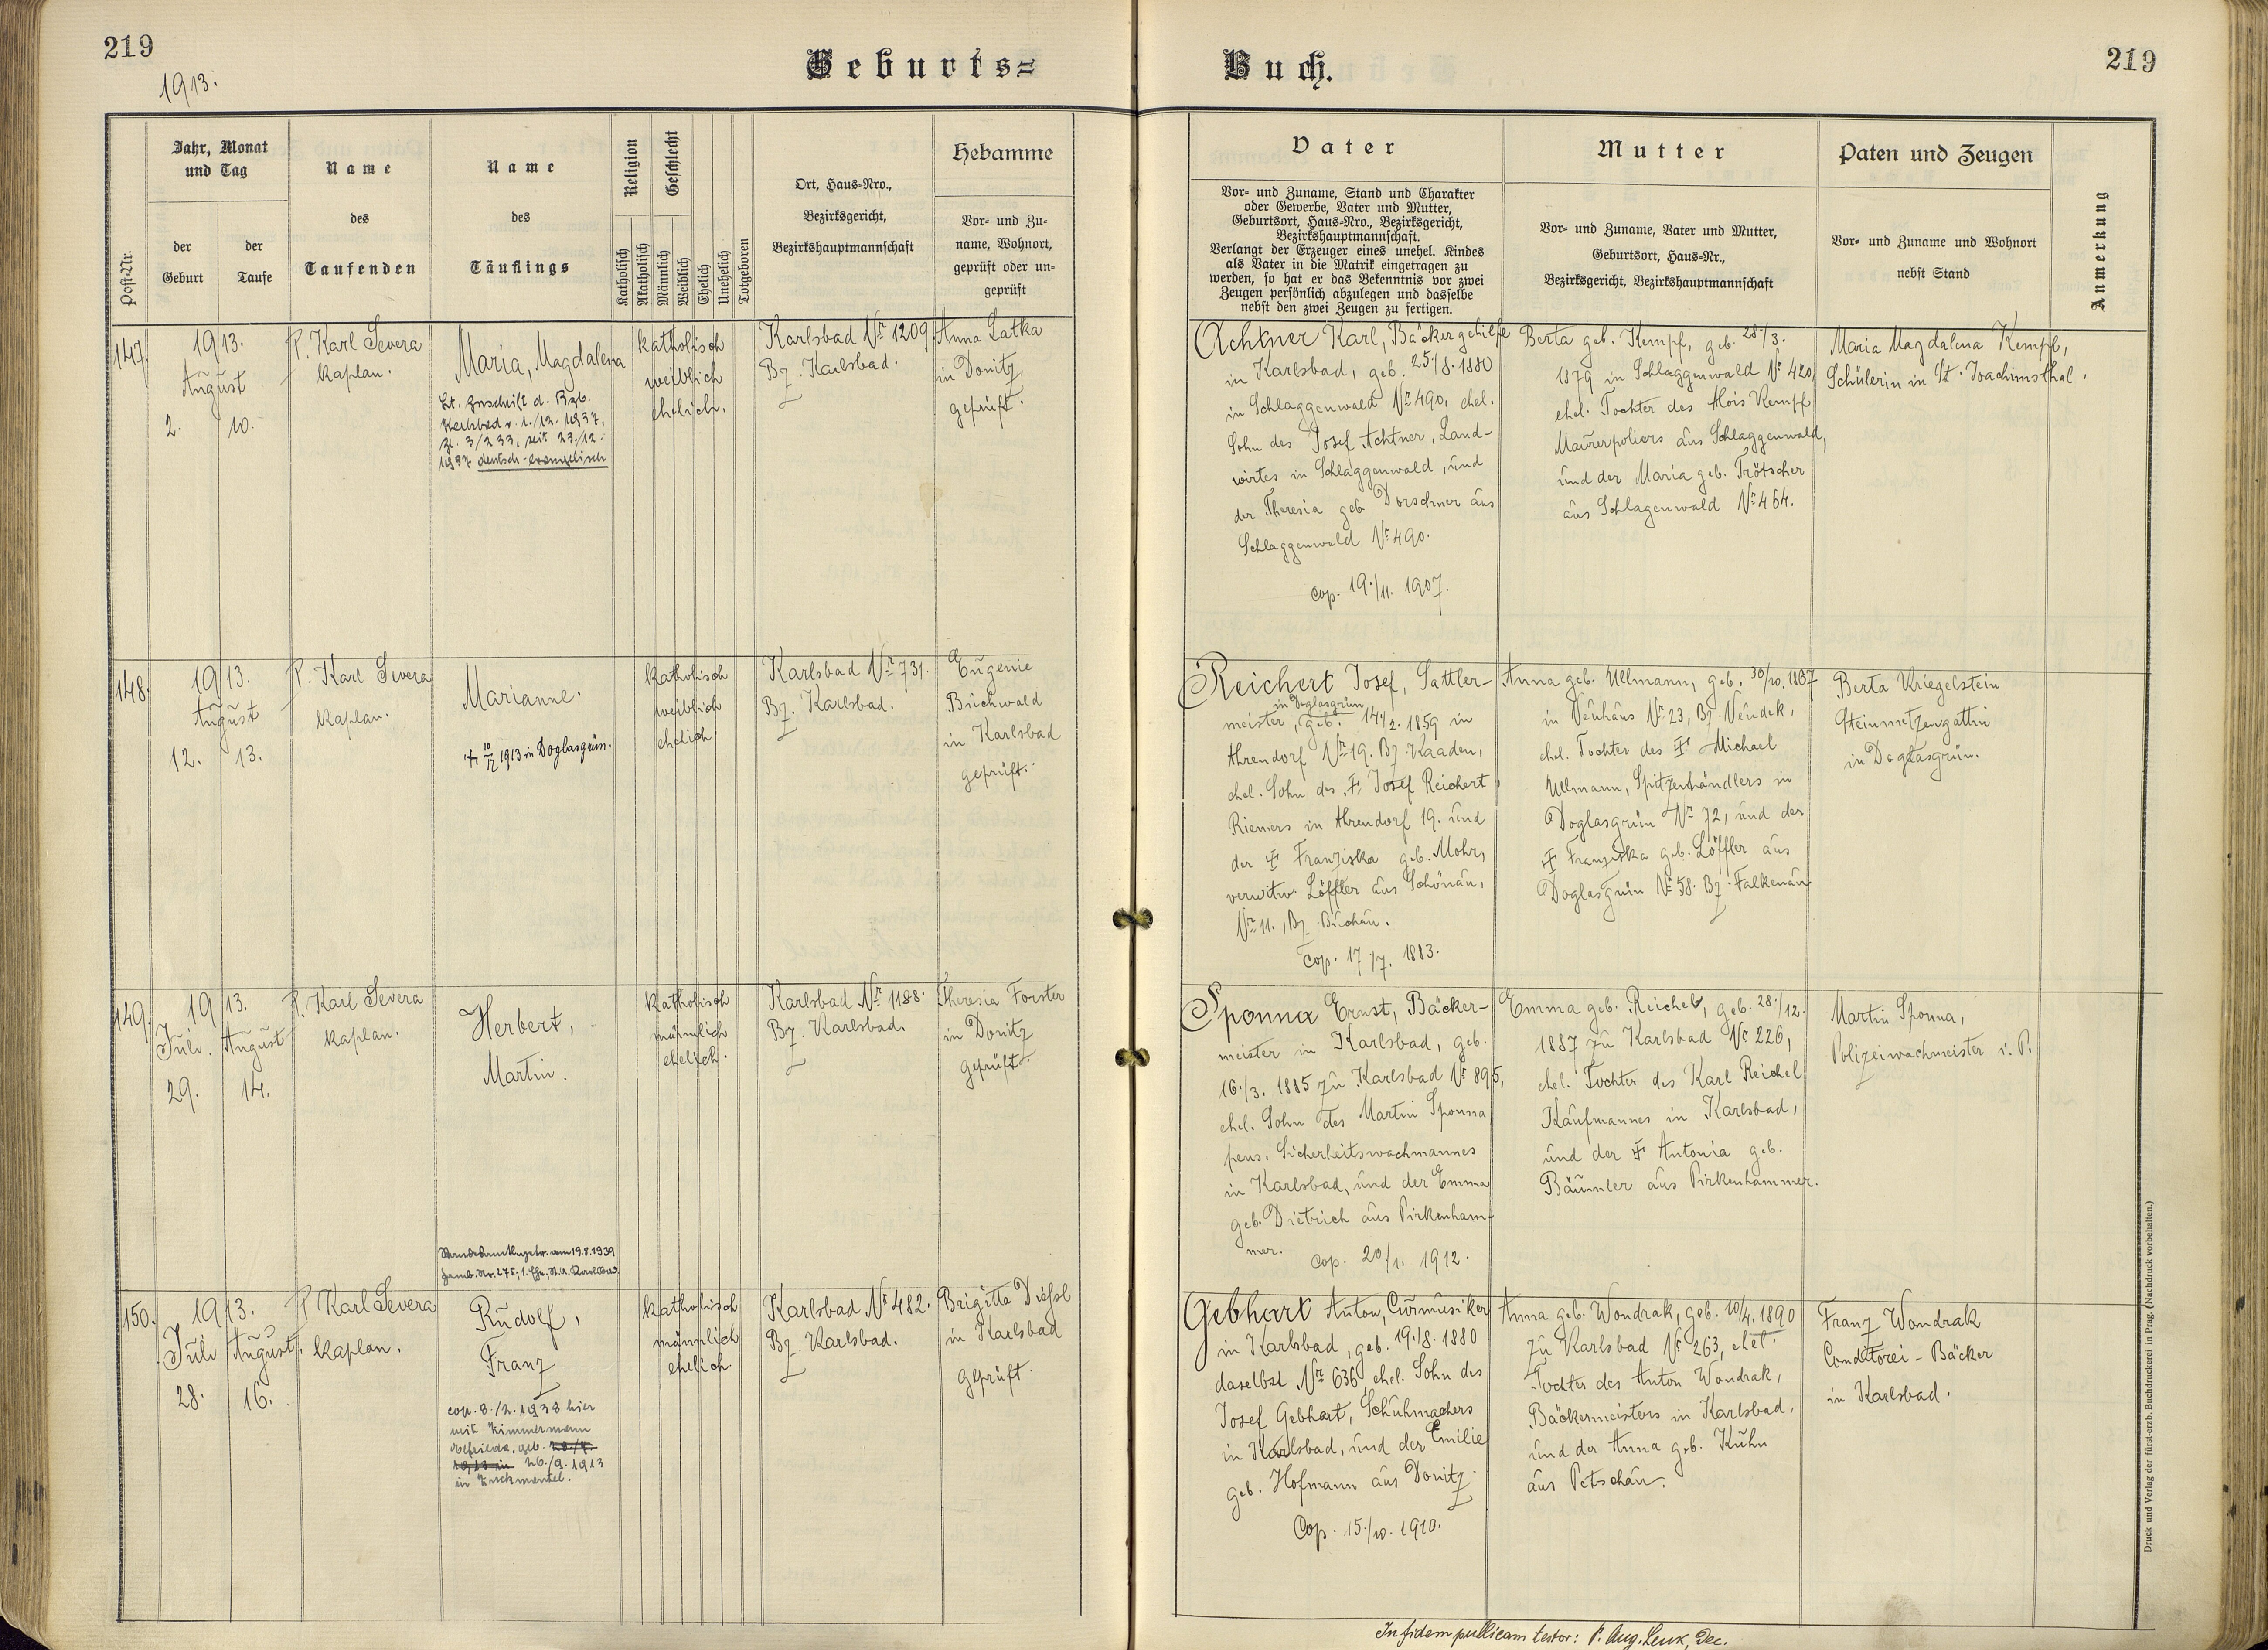 219
1913.
Geburts=
Buch.
219
Post-Nr.
Jahr, Monat
und Tag
der
Geburt
der
Taufe
Name
des
Taufenden
Name
des
Täuflings
Religion
Katholisch
Akatholisch
Geschlecht
Männlich
Weiblich
Ehelich
Unehelich
Totgeboren
Ort, Haus-Nro.,
Bezirksgericht,
Bezirkshauptmannschaft
Hebamme
Vor- und Zu-
name, Wohnort,
geprüft oder un-
geprüft
Vater
Vor- und Zuname, Stand und Charakter
oder Gewerbe, Vater und Mutter,
Geburtsort, Haus-Nro., Bezirksgericht,
Bezirkshauptmannschaft.
Verlangt der Erzeuger eines unehel. Kindes
als Vater in die Matrik eingetragen zu
werden, so hat er das Bekenntnis vor zwei
Zeugen persönlich abzulegen und dasselbe
nebst den zwei Zeugen zu fertigen.
Mutter
Vor- und Zuname, Vater und Mutter,
Geburtsort, Haus-Nr.,
Bezirksgericht, Bezirkshauptmannschaft
Paten und Zeugen
Vor- und Zuname und Wohnort
nebst Stand
Anmerkung
147.
1913.
August
2. 10.
P. Karl Severa
Kaplan.
Maria, Magdalena
Lt. Zuschrift d. Bzb.
Karlsbad v. 1./12. 1937,
Zl. 3/233, seit 23./12.
1937 deutsch-evangelisch
katholisch
weiblich
ehelich.
Karlsbad Nr 1209
Bz. Karlsbad.
Anna Latka
in Donitz
geprüft.
Achtner Karl, Bäckergehilfe
in Karlsbad, geb. 25./8. 1880
in Schlaggenwald Nr 490, ehel.
Sohn des Josef Achtner, Land-
wirtes in Schlaggenwald, und
der Theresia geb. Dorschner aus
Schlaggenwald Nr 490.
Cop. 19./11. 1907.
Berta geb. Kempf, geb. 28./3.
1879 in Schlaggenwald Nr 420,
ehel. Tochter des Alois Kempf
Maurerpoliers aus Schlaggenwald,
und der Maria geb. Trötscher
aus Schlagenwald Nr 464.
Maria Magdalena Kempf,
Schülerin in St. Joachimsthal.
148.
1913.
August
12. 13.
P. Karl Severa
Kaplan.
Marianne.
† 10/12 1913 in Doglasgrün.
katholisch
weiblich
ehelich
Karlsbad Nr 731.
Bz. Karlsbad.
Eugenie
Buchwald
in Karlsbad
geprüft.
Reichert Josef, Sattler-
in Doglasgrün
meister, geb. 14./2. 1859 in
Ahrendorf Nr 19. Bz. Kaaden,
ehel. Sohn des † Josef Reichert
Riemers in Ahrendorf 19. und
der † Franziska geb. Mohr,
verwitw. Löffler aus Schönau,
Nr 11., Bz. Buchau.
Cop. 17./7. 1883.
Anna geb. Ullmann, geb. 30/10. 1867
in Neuhaus Nr 23, Bz. Neudek,
ehel. Tochter des † Michael
Ullmann, Spitzenhändlers in
Doglasgrün Nr 72, und der
† Franziska geb. Löffler aus
Doglasgrün Nr 58. Bz. Falkenau
Berta Kriegelstein
Steinmetzengattin
in Doglasgrün.
149.
1913.
Juli. August
29. 14.
P. Karl Severa
Kaplan.
Herbert,
Martin.
katholisch
männlich
ehelich.
Karlsbad Nr 1188.
Bz. Karlsbad.
Theresia Forster
in Donitz
geprüft.
Sponna Ernst, Bäcker-
meister in Karlsbad, geb.
16./3. 1885 zu Karlsbad Nr 895,
ehel. Sohn des Martin Sponna
pens. Sicherheitswachmannes
in Karlsbad, und der Emma
geb. Dietrich aus Pirkenham-
mer.
Cop. 20/1. 1912.
Emma geb. Reichel, geb. 28./12.
1887 zu Karlsbad Nr 226,
ehel. Tochter des Karl Reichel
Kaufmannes in Karlsbad,
und der † Antonia geb.
Bäumler aus Pirkenhammer.
Martin Sponna,
Polizeiwachmeister i. P.
am 19.8.1939
150.
1913.
Juli August.
28. 16.
P. Karl Severa
Kaplan.
Rudolf,
Franz
cop. 8./2. 1938 hier
mit Zimmermann
geb. 28./4.
1913 in 26./9. 1913
in Zuckmantel.
katholisch
männlich
ehelich
Karlsbad Nr 482.
Bz. Karlsbad.
Brigitta Dießl
in Karlsbad
geprüft.
Gebhart Anton, Curmusiker
in Karlsbad, geb. 19./8. 1880
daselbst Nr 636, ehel. Sohn des
Josef Gebhart, Schuhmachers
in Karlsbad, und der Emilie
geb. Hofmann aus Donitz.
Cop. 15./10. 1910.
Anna geb. Wondrak, geb. 10/4. 1890
zu Karlsbad Nr 263, ehel.
Tochter des Anton Wondrak,
Bäckermeisters in Karlsbad,
und der Anna geb. Kuhn
aus Petschau.
Franz Wondrak
Conditorei-Bäcker
in Karlsbad.
In fidem publicam testor: P. Aug. Leux, Dec.
Druck und Verlag der fürst-erzb. Buchdruckerei in Prag. (Nachdruck vorbehalten.)